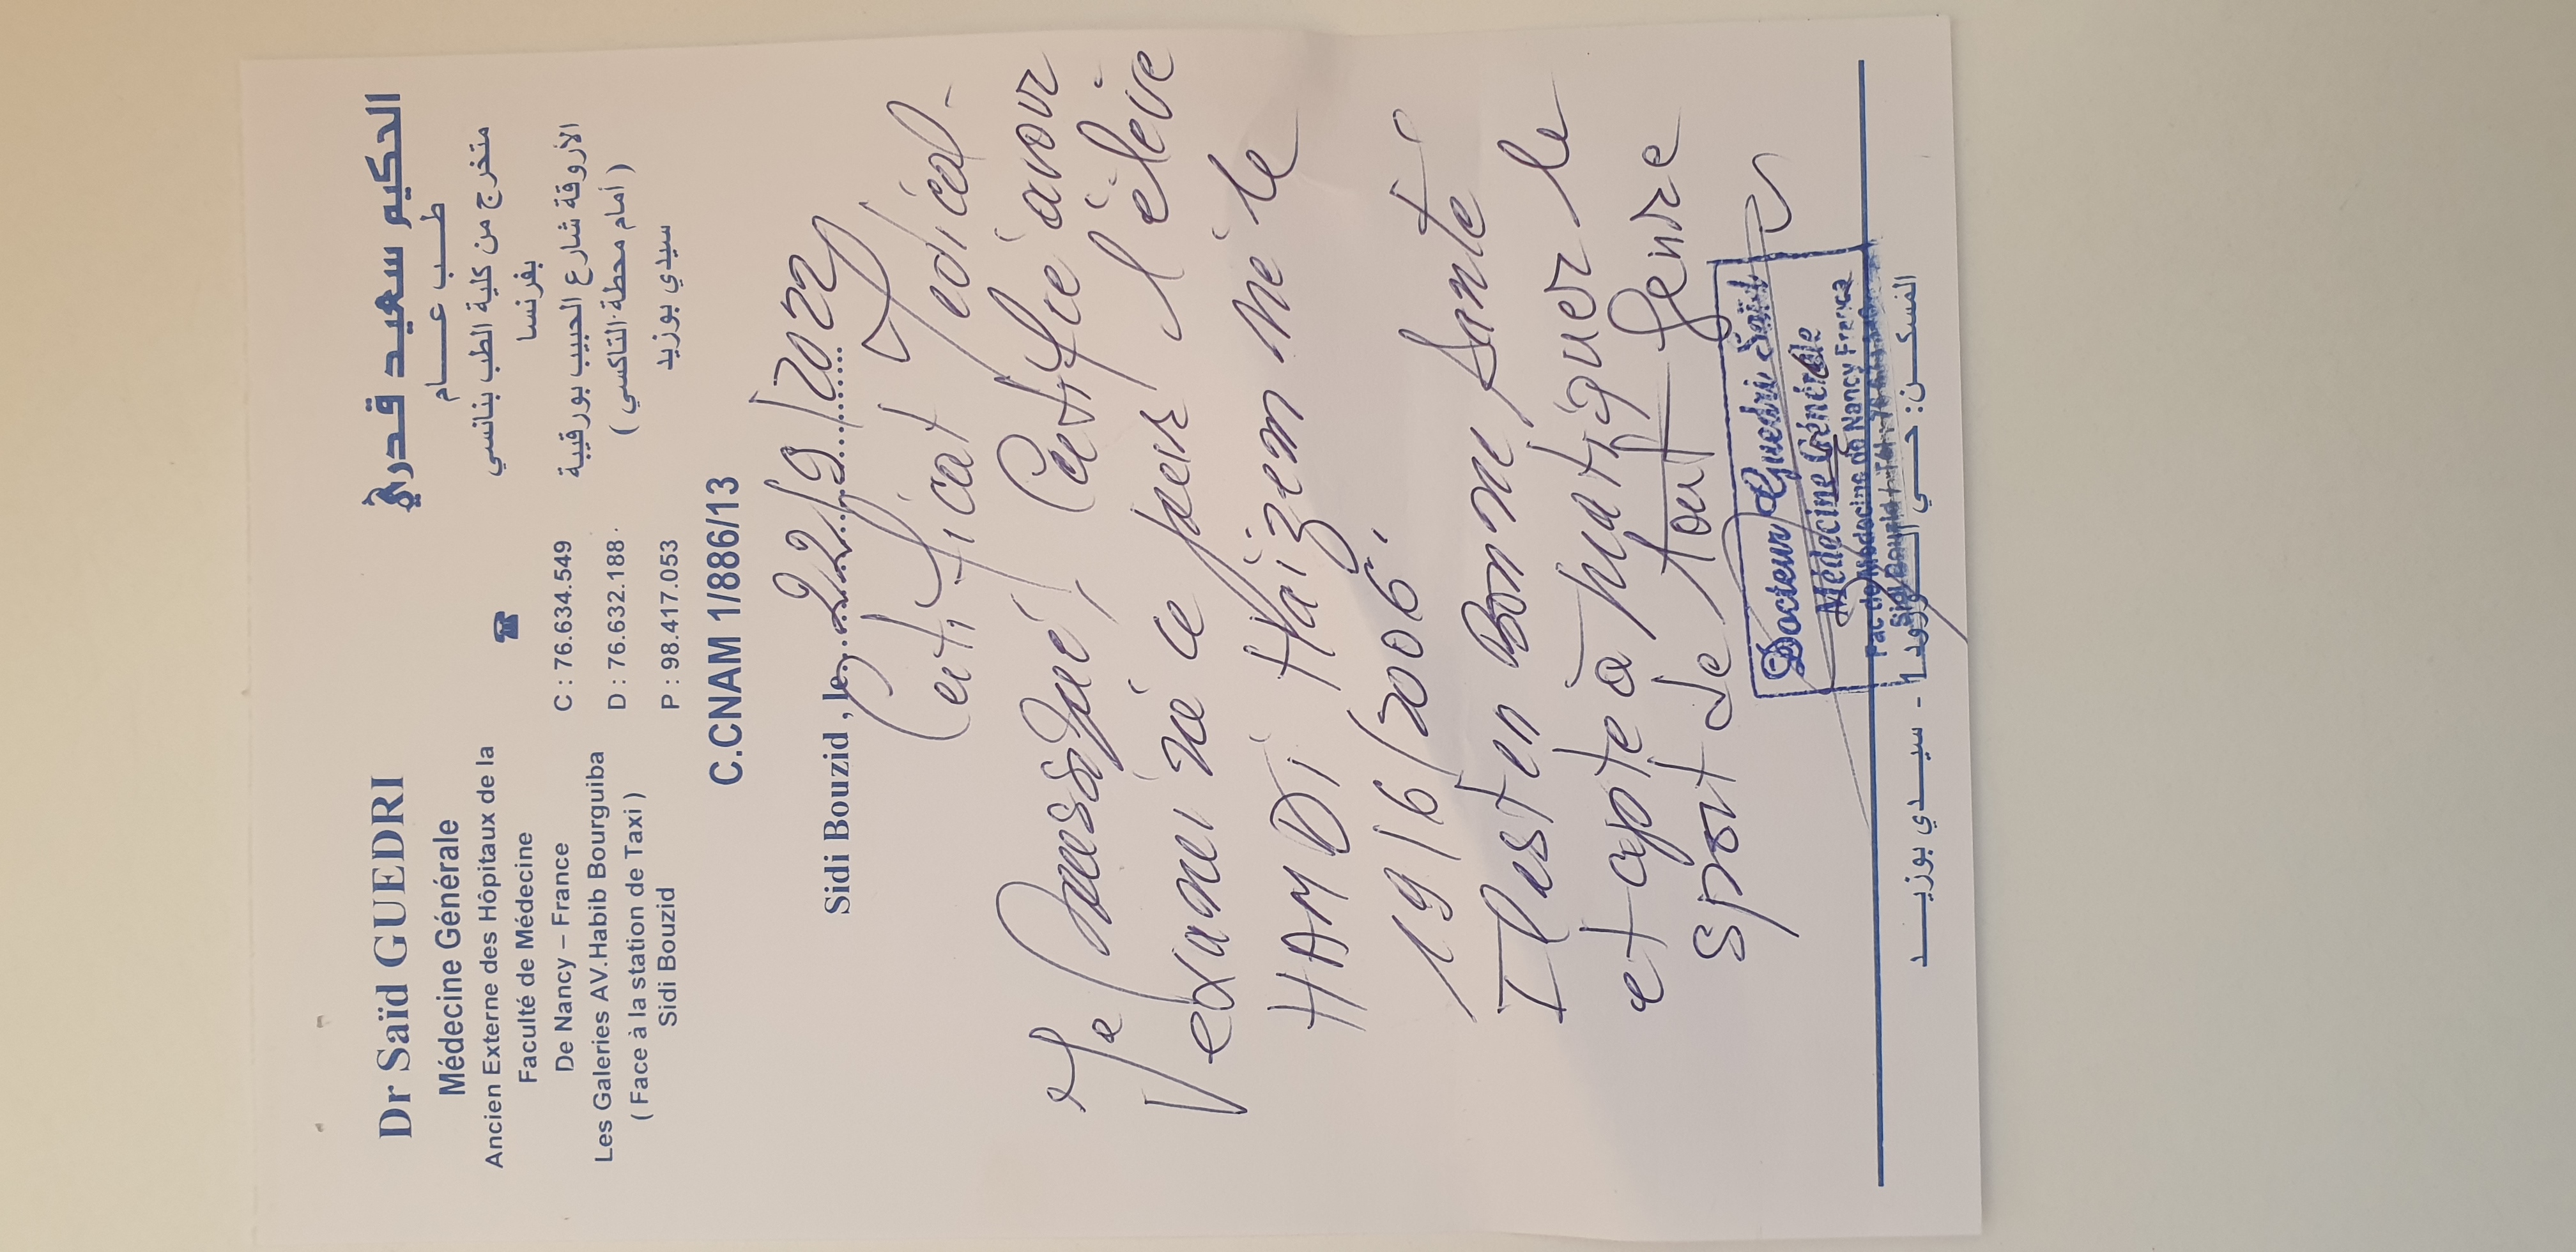 Dr Saïd GUEDRI
Médecine Générale
Ancien Externe des Hôpitaux de la
Faculté de Médecine
De Nancy – France
Les Galeries AV.Habib Bourguiba
( Face à la station de Taxi )
Sidi Bouzid
☎
C : 76.634.549
D : 76.632.188
P : 98.417.053
الحكيم سعيد قدري
طب عام
متخرج من كلية الطب بنانسي
بفرنسا
الأروقة شارع الحبيب بورقيبة
( أمام محطة التاكسي )
سيدي بوزيد
C.CNAM 1/886/13
Sidi Bouzid , le 22/9/2022
Certificat Médical
Je soussigné, Certifie avoir
examiné ce jour l'élève
HAMDI Haizem né le
19/6/2006.
Il est en Bonne Santé
et apte à pratiquer le
sport de tout genre
Docteur Guedri Saïd
Médecine Générale
Fac de Médecine de Nancy France
Sidi Bouzid Tél : 76
المسكن : حي - سيدي بوزيد